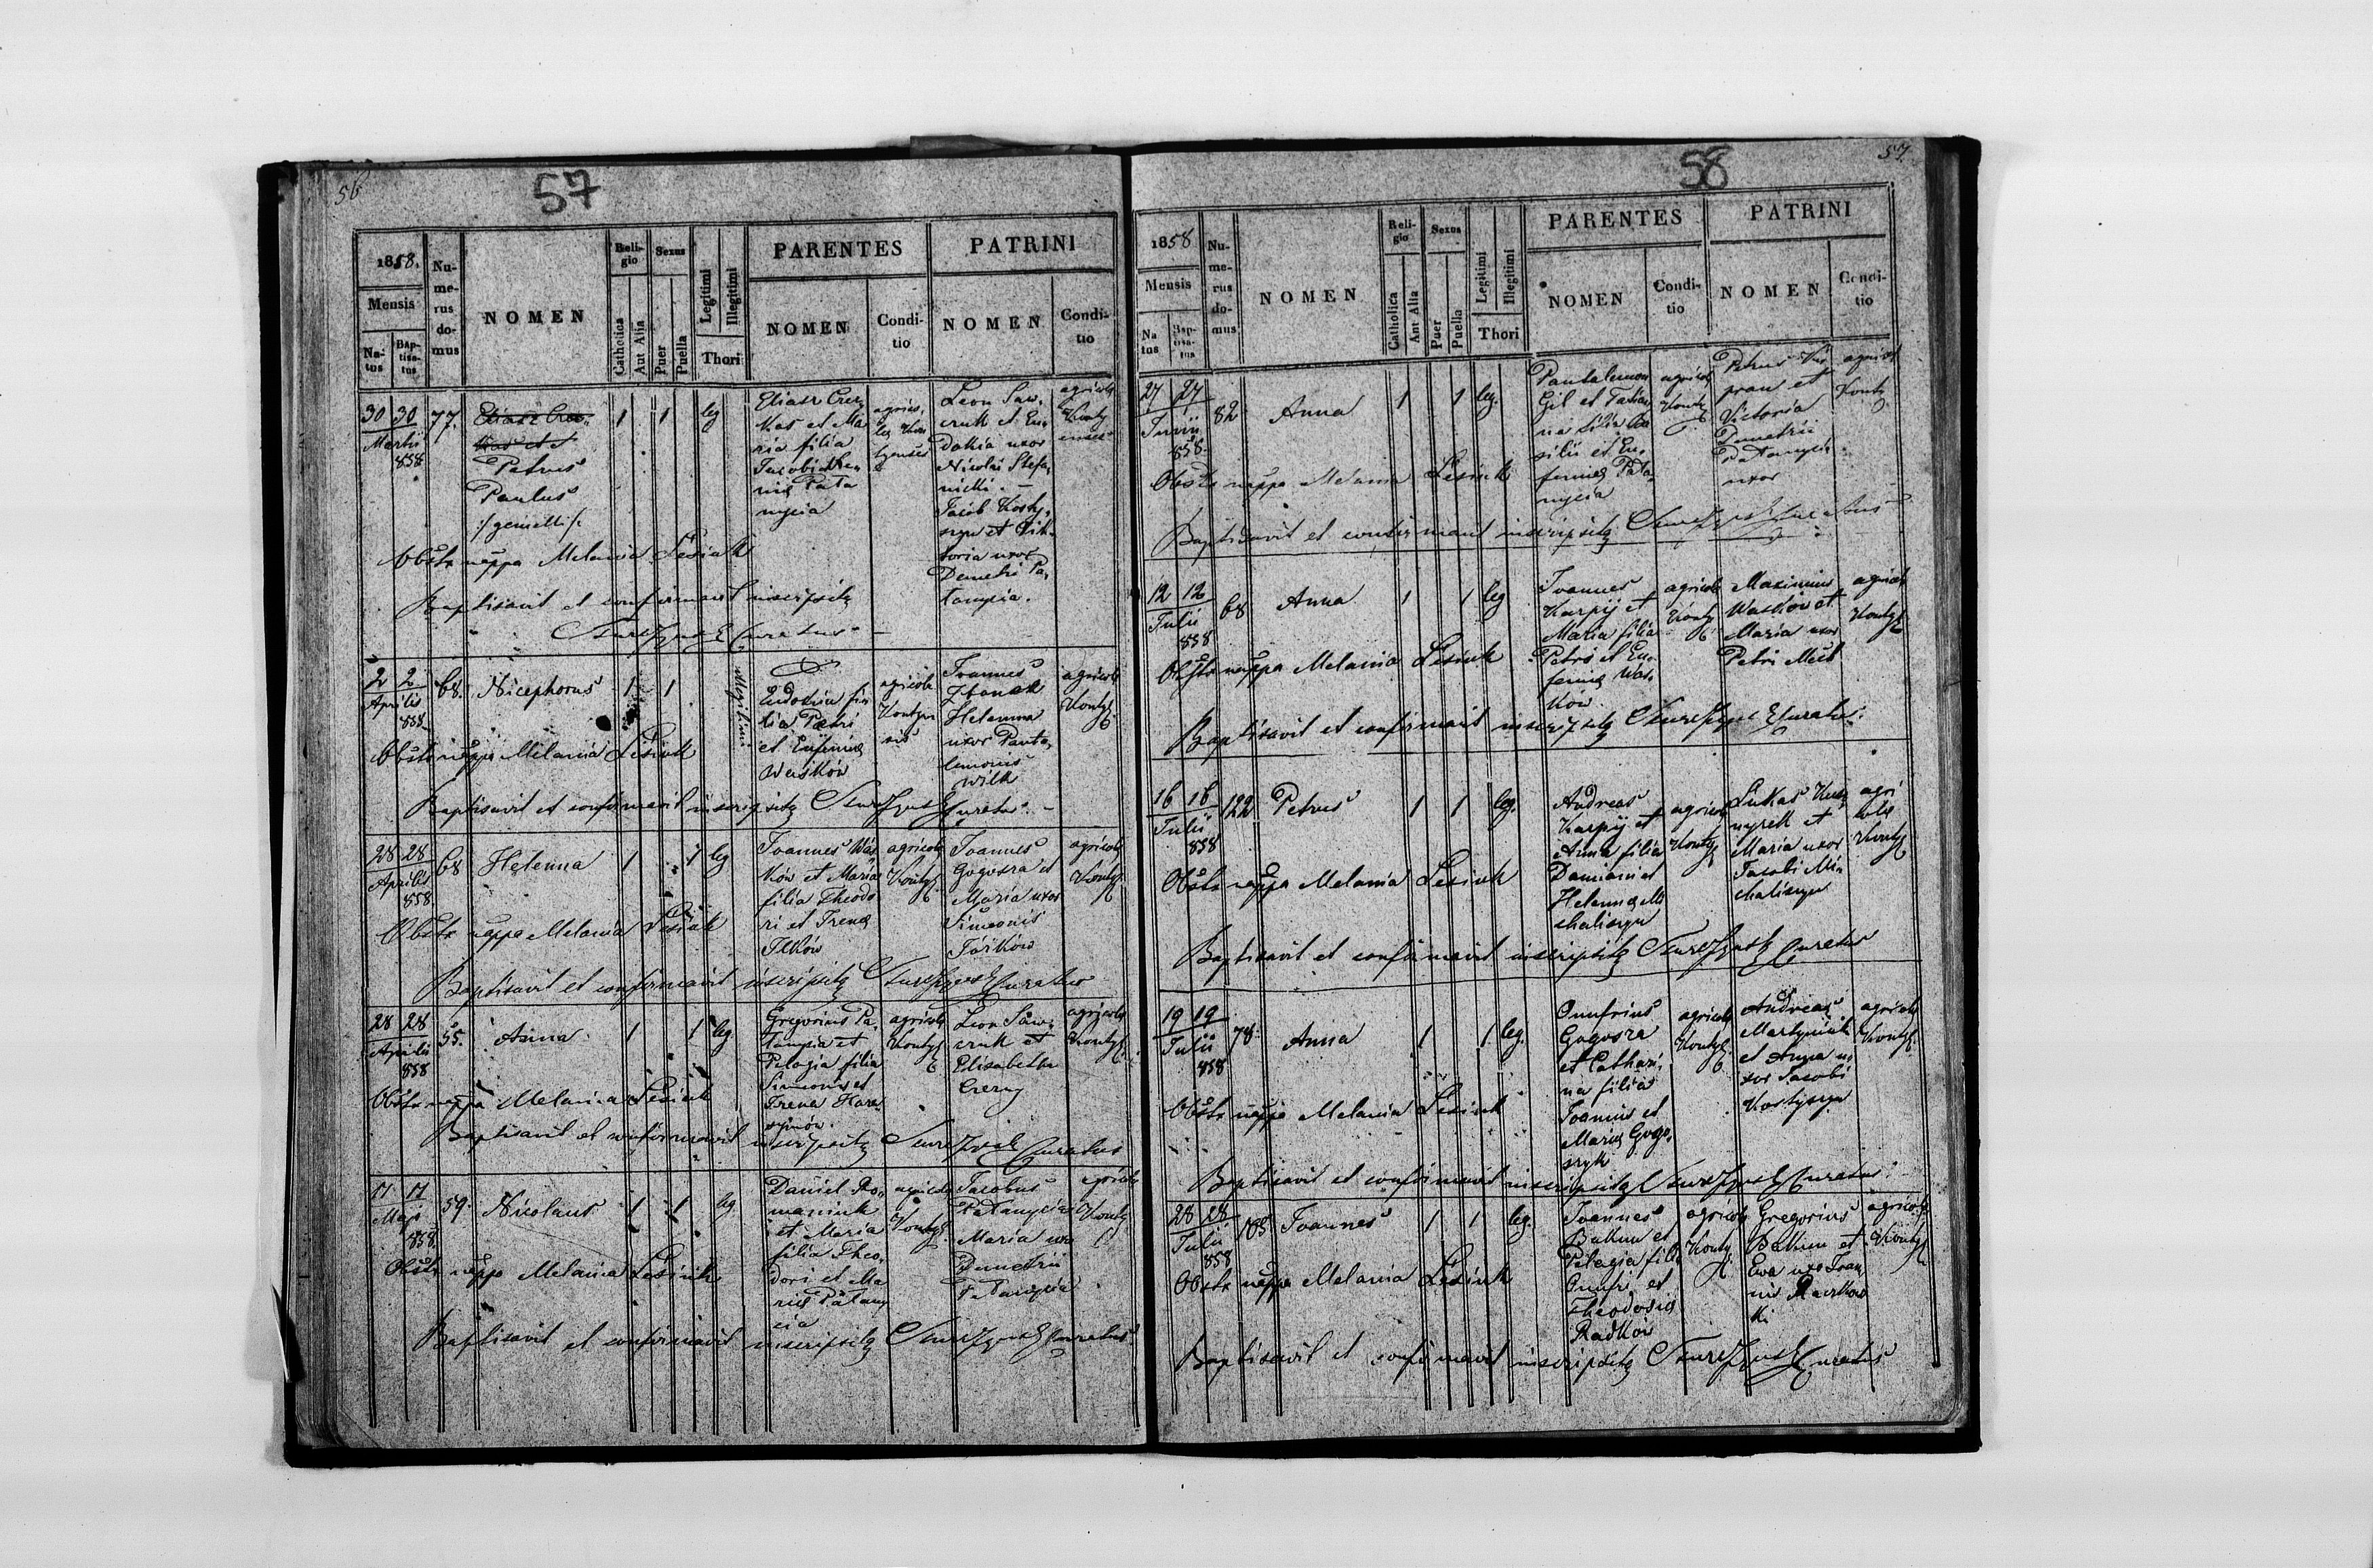 56
57
1858.
Mensis
Na-
tus
Bap-
tisa-
tus
Nu-
me-
rus
do-
mus
NOMEN
Reli-
gio
Catholica
Aut Alia
Sexus
Puer
Puella
Legitimi
Illegitimi
Thori
PARENTES
NOMEN
Condi-
tio
PATRINI
NOMEN
Condi-
tio
30 30
Martii
858
77.
Petrus
Paulus
:/gemelli/:
1
1
leg
Elias
et Ma
ria filia
Jacobi
Pata
nycia
Leon Saw,
czuk et Eu,
dokia uxor
Nicolai Stefa,
nicki. —
Jacob Kosty,
szyn et Vik,
toria uxor
Demetri Pa,
tanycia.
agricola
Obste nappa Melania Lesiuk
Baptisavit et confirmavit inscripsitq
Curatus
2 2
Aprilis
858
68.
Nicephorus
1
1
illegitimi
Eudokia fi
lia Petri
et Eufemia
Waskow
agricola
Joannes
Helenna
uxor Panta,
lemonis
Wilk
agricola
Konty
Obste nappa Melania Lesiuk
Baptisavit et confirmavit inscripsitq Curatus. —
28 28
Aprilis
858
68
Helenna
1
1
leg
Joannes Was
kow et Maria
filia Theodo
ri et Irena
Ilkow
agricola
Konty
Joannes
Gogosza et
Maria uxor
Simeonis
agricola
Konty
Obste nappa Melania Lesiuk
Baptisavit et confirmavit inscripsitq Curatus
28 28
Aprilis
858
55.
Anna
1
1
leg
Gregorius Pa,
tanycia et
Pelagia filia
Simeonis et
Irena
agricola
Konty
Leon Saw,
czuk et
Elisabetha
Czerny
agricola
Konty
Obste nappa Melania Lesiuk
Baptisavit et confirmavit inscripsitq Curatus
Maji
858
59.
Nicolaus
1
1
leg.
Daniel Ro,
maniuk
et Maria
filia Theo,
dori et Ma
ria Patany
cia
agricola
Konty
Jacobus
Patanycia
Maria uxor
Demetrii
Patanycia
agricola
Konty
Obste nappa Melania Lesiuk
Baptisavit et confirmavit inscripsitq Curatus
57.
58
1858
Mensis
Na
tus
Bap-
tisa-
tus
Nu-
me-
rus
do-
mus
NOMEN
Reli-
gio
Catholica
Aut Alia
Sexus
Puer
Puella
Legitimi
Illegitimi
Thori
PARENTES
NOMEN
Condi-
tio
PATRINI
NOMEN
Condi-
tio
27 27
Junii
858.
82
Anna
1
1
leg.
Pantalemon
Gil et Tatian
na filia Ba
silii et Eu,
femia Pata,
nycia
agricola
Konty
Petrus
et
Victoria
Demetrii
Patanycia
uxor
agricol
Konty
Obste nappa Melania Lesiuk
Baptisavit et confirmavit inscripsitq Curatus
12 12
Julii
858
68
Anna
1
1
leg
Joannes
Karpij et
Maria filia
Petri et Eu,
femia Was,
kow
agricola
Konty
Maximus
Waskow et
Maria uxor
Petri
agricola
Konty
Obste nappa Melania Lesiuk
Baptisavit et confirmavit inscripsitq Curatus.
16 16
Julii
858
122
Petrus
1
1
leg.
Andreas
Karpij et
Anna filia
Damiani et
Helenna Mi
chaliszyn
agricola
Konty
Lukas
et
Maria uxor
Jacobi Mi,
chaliszyn
agri
cola
Konty
Obste nappa Melania Lesiuk
Baptisavit et confirmavit inscripsitq Curatus
19 19
Julii
858
78.
Anna
1
1
leg.
Onufrius
Gogosza
et Cathari,
na filia
Joannis et
Maria Gogo,
szyk
agricola
Konty
Andreas
Martyniuk
et Anna u,
xor Jacobi
Kostyszyn
agricola
Konty
Obste nappa Melania Lesiuk
Baptisavit et confirmavit inscripsitq Curatus.
28 28
Julii
858
105
Joannes
1
1
leg.
Joannes
Bakun et
Pelagia filia
Onufri et
Theodosia
Radkow
agricola
Konty
Gregorius
Bakun et
Ewa uxor Joan,
nis
agricola
Konty
Obste nappa Melania Lesiuk
Baptisavit et confirmavit inscripsitq Curatus